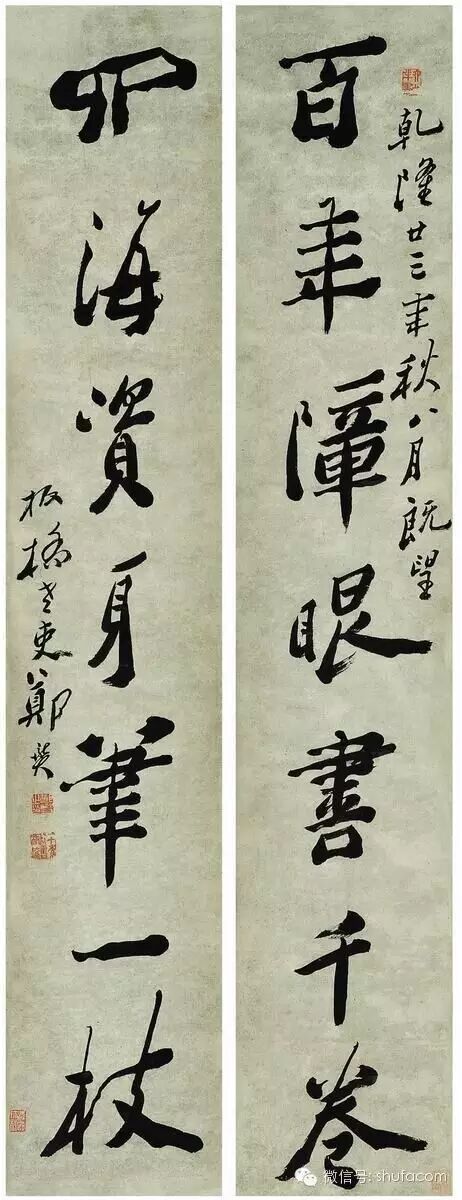 百年障眼書千卷
乾隆廿三年秋八月既望
四海資身筆一枝
板橋老吏鄭燮
微信号: shufacom